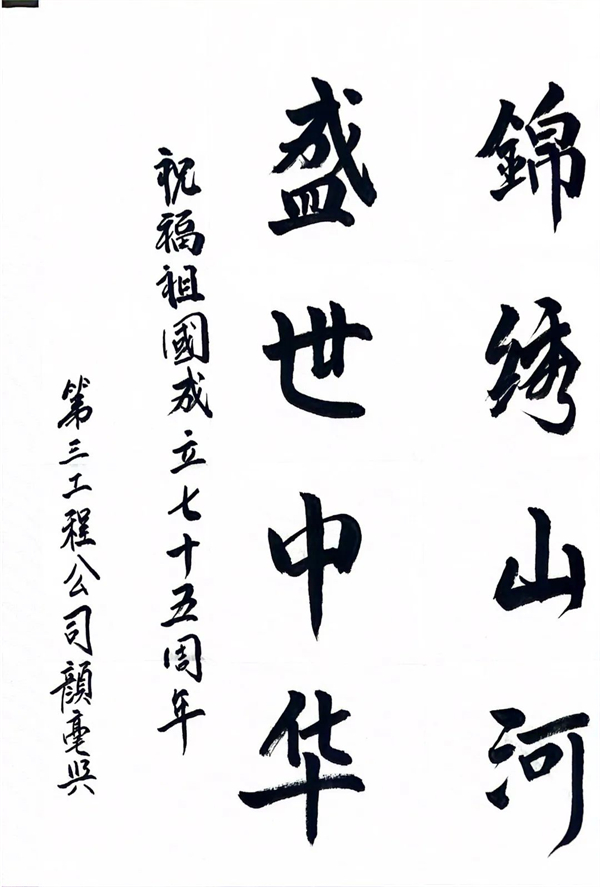 錦绣山河
盛世中华
祝福祖國成立七十五周年
第三工程公司顔毫兴